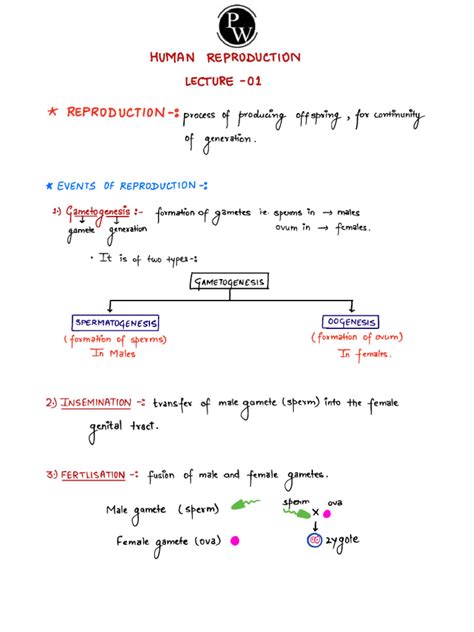 PW
HUMAN REPRODUCTION
LECTURE -01
* REPRODUCTION -: process of producing offspring, for continuity
of generation.
* EVENTS OF REPRODUCTION -:
1.) Gametogenesis :- formation of gametes i.e. sperms in → males
gamete generation ovum in → females.
• It is of two types -:
GAMETOGENESIS
SPERMATOGENESIS OOGENESIS
(formation of sperms) (formation of ovum)
In Males In females.
2.) INSEMINATION -: transfer of male gamete (sperm) into the female
genital tract.
3.) FERTLISATION -: fusion of male and female gametes.
Male gamete (sperm) sperm x ova
Female gamete (ova) zygote